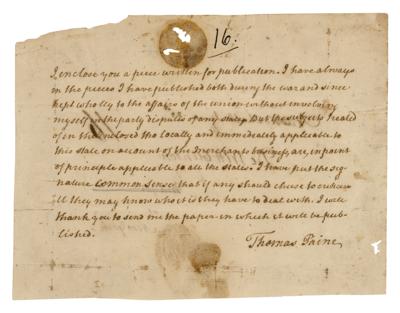 16.
I enclose you a piece written for publication. I have always
in the pieces I have published both during the war and since
kept wholly to the affairs of the union without involving
myself in the party disputes of any state. But the subjects treated
of in the inclosed tho locally and immediately applicable to
this state on account of the Merchants business, are, in point
of principle applicable to all the states. I have put the sig-
nature Common Sense that if any should chuse to
all they may know who it is they have to deal with. I will
thank you to send me the paper in which it will be pub-
lished.
Thomas Paine